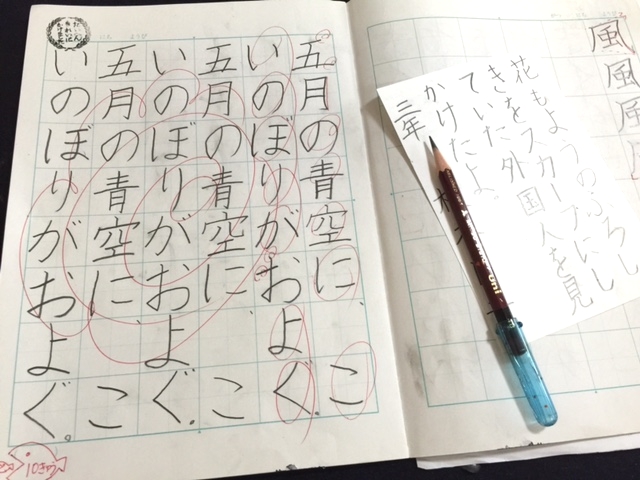 風風風
花もようのふろし
きをスカーフにし
ていた外国人を見
かけたよ
三年
五月の青空に、こ
いのぼりがおよぐ。
五月の青空に、こ
いのぼりがおよぐ。
五月の青空に、こ
いのぼりがおよぐ。
uni